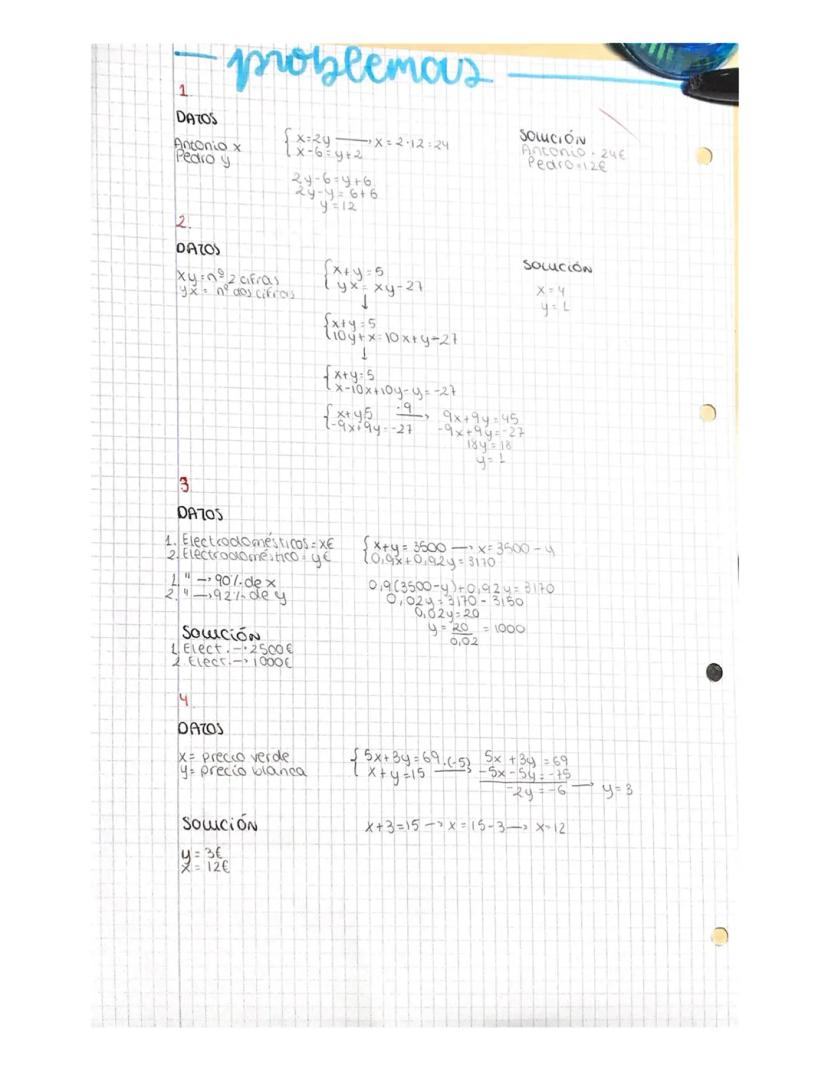 problemas
1.
DATOS
Antonio x
Pedro y
x=2y → x=2·12=24
x-6=y+2
2y-6=y+6
2y-y=6+6
y=12
SOLUCIÓN
Antonio - 24€
Pedro=12€
2.
DATOS
xy=nº 2 cifras
yx= nº dos cifras
x+y=5
yx=xy-27
↓
x+y=5
10y+x=10x+y-27
↓
x+y=5
x-10x+10y-y=-27
x+y5 ·9 → 9x+9y=45
-9x+9y=-27 -9x+9y=-27
18y=18
y=1
SOLUCIÓN
x=4
y=1
3.
DATOS
1. Electrodomésticos=x€
2. Electrodoméstico=y€
1. " → 90% de x
2. " → 92% de y
x+y=3500 → x=3500-y
0,9x+0,92y=3170
0,9(3500-y)+0,92y=3170
0,02y=3170-3150
0,02y=20
y=20/0,02=1000
SOLUCIÓN
1 Elect. → 2500€
2 Elect. → 1000€
4
DATOS
x= precio verde
y= precio blanca
5x+3y=69 ·(-5) 5x+3y=69
x+y=15 → -5x-5y=-75
-2y=-6 → y=3
SOLUCIÓN
x+3=15 → x=15-3 → x=12
y=3€
x=12€